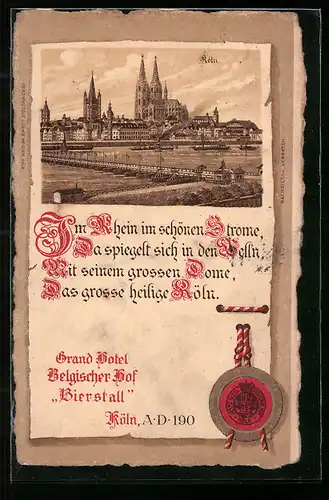 Köln.
Im Rhein im schönen Strome,
Da spiegelt sich in den Welln
Mit seinem grossen Dome,
Das grosse heilige Köln.
Grand Hotel
Belgischer Hof
„Bierstall"
Köln, A·D·190
NACHDRUCK VERBOTEN